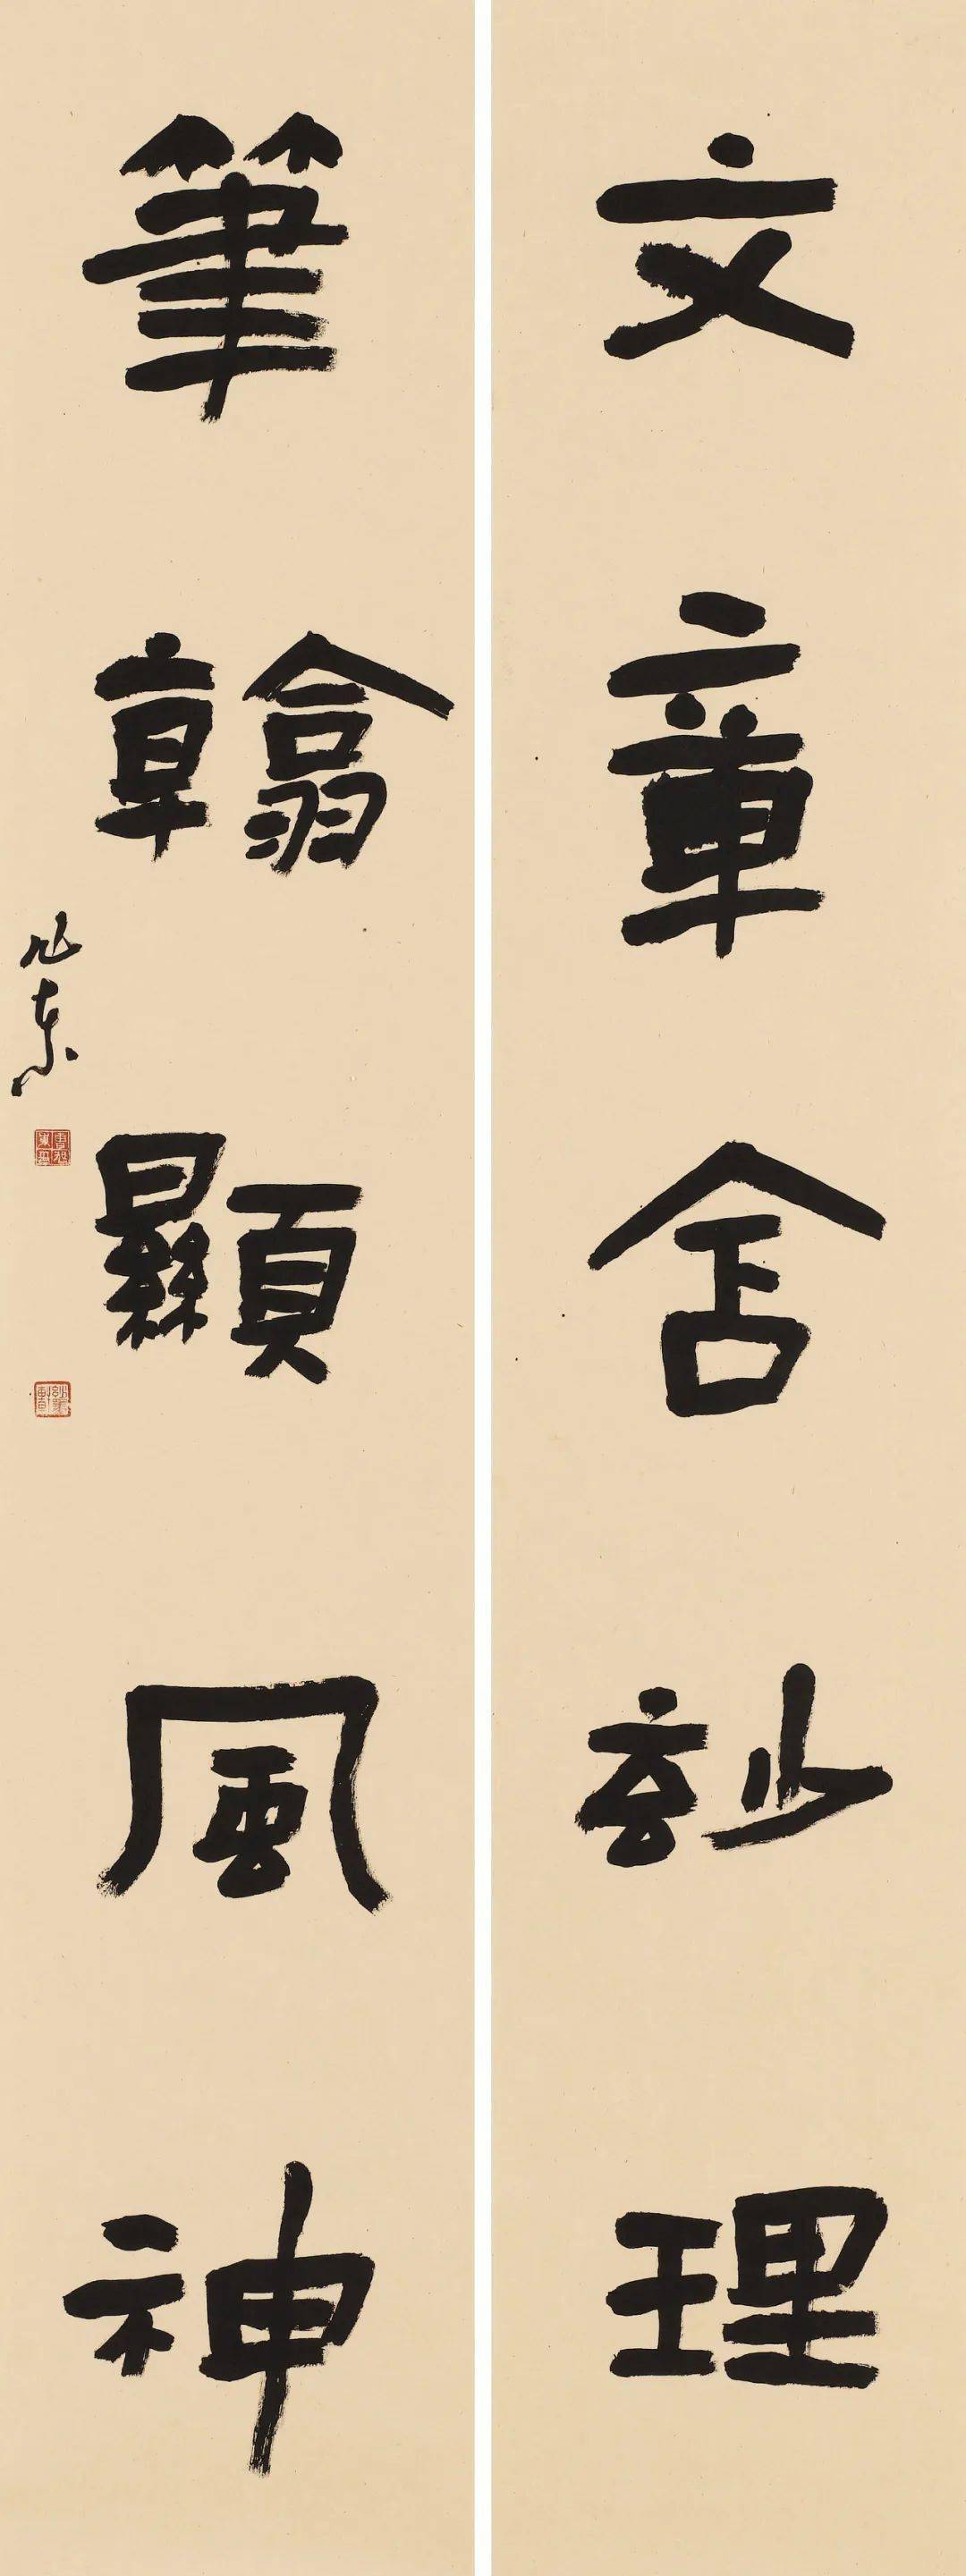 文章含玅理
筆翰顯風神
旭東